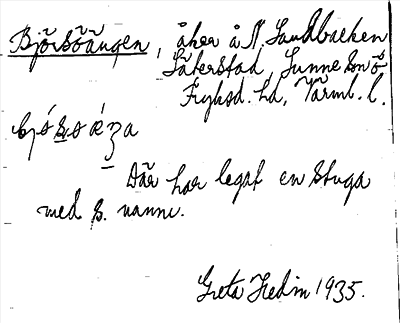 Björsöängen, åker å N. Sandbacken
Säterstad, Sunne sn
Fryksd. hd, Värml. l.
Där har legat en stuga
med s. namn.
Greta Hedin 1935.